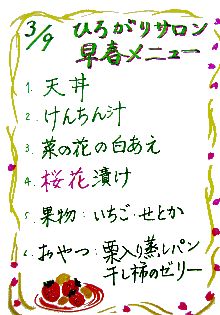 3/9 ひろがりサロン
早春メニュー
1. 天丼
2. けんちん汁
3. 菜の花の白あえ
4. 桜花漬け
5. 果物:いちご・せとか
6. おやつ:栗入り蒸しパン
干し柿のゼリー